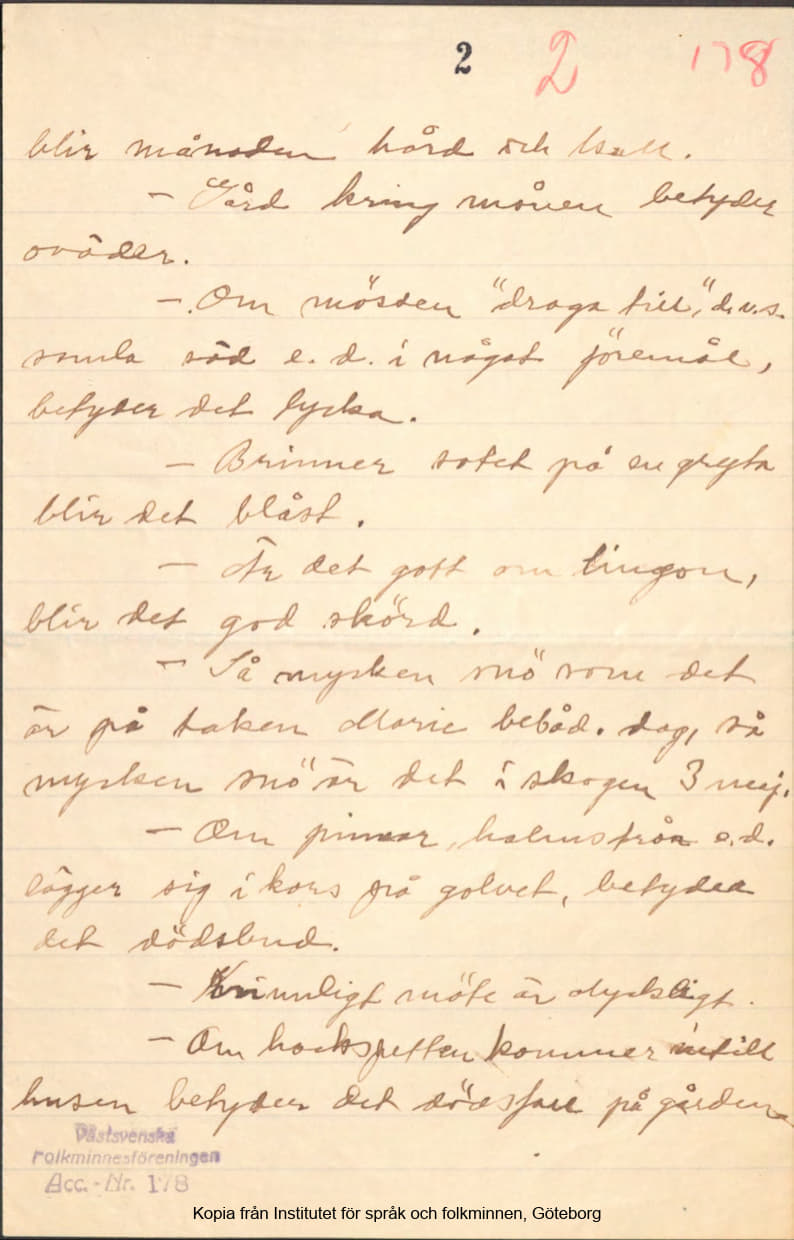 2 2 178
blir månaden hård och kall.
- Gård kring månen betyder
oväder.
- Om mössen "draga till", d.v.s.
samla säd e. d. i något föremål,
betyder det lycka.
- Brinner sotet på en gryta
blir det blåst.
- Är det gott om lingon,
blir det god skörd.
- Så mycken snö som det
är på taken Marie bebåd. dag, så
mycken snö är det i skogen 3 maj.
- Om pinnar, halmstrån e.d.
lägger sig i kors på golvet, betyder
det dödsbud.
- Kvinnligt möte är olycksligt.
- Om hackspetten kommer intill
husen betyder det dödsfall på gården
Västsvenska
Folkminnesföreningen
Acc.-Nr. 178
Kopia från Institutet för språk och folkminnen, Göteborg